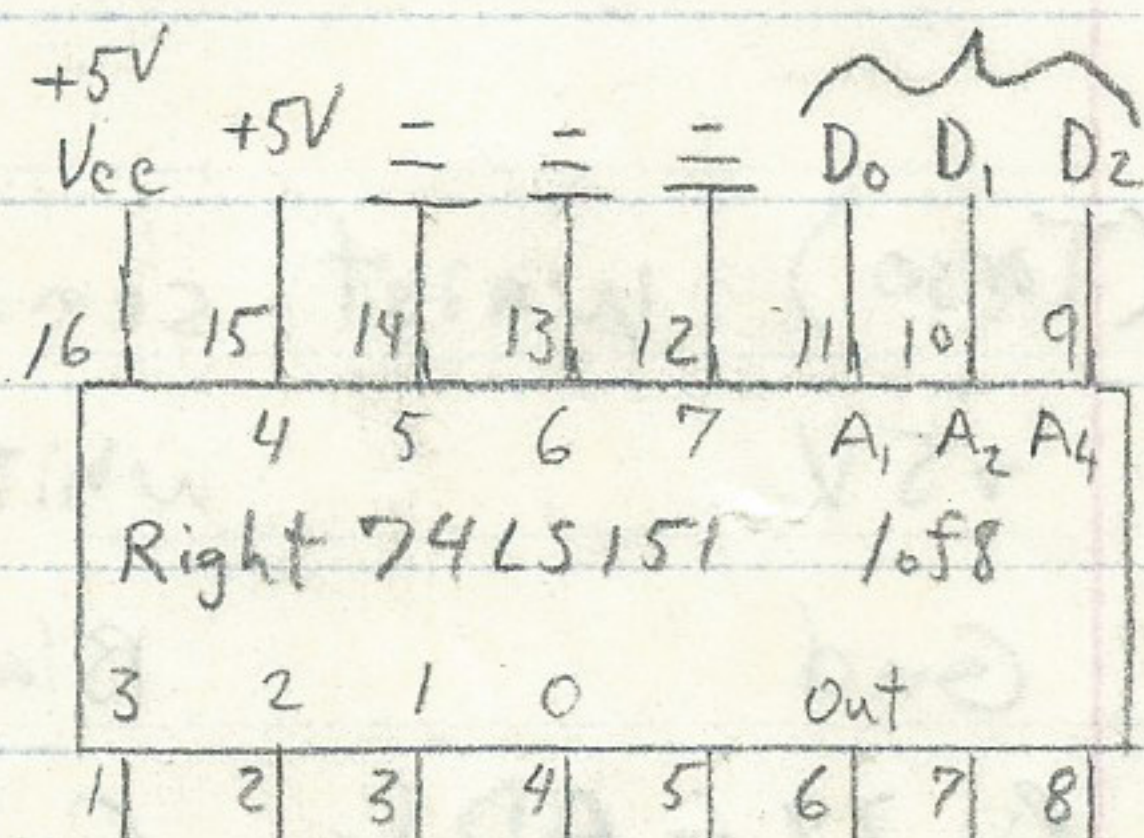 +5V
Vcc +5V D0 D1 D2
16 15 14 13 12 11 10 9
4 5 6 7 A1 A2 A4
Right 74LS151 1of8
3 2 1 0 Out
1 2 3 4 5 6 7 8